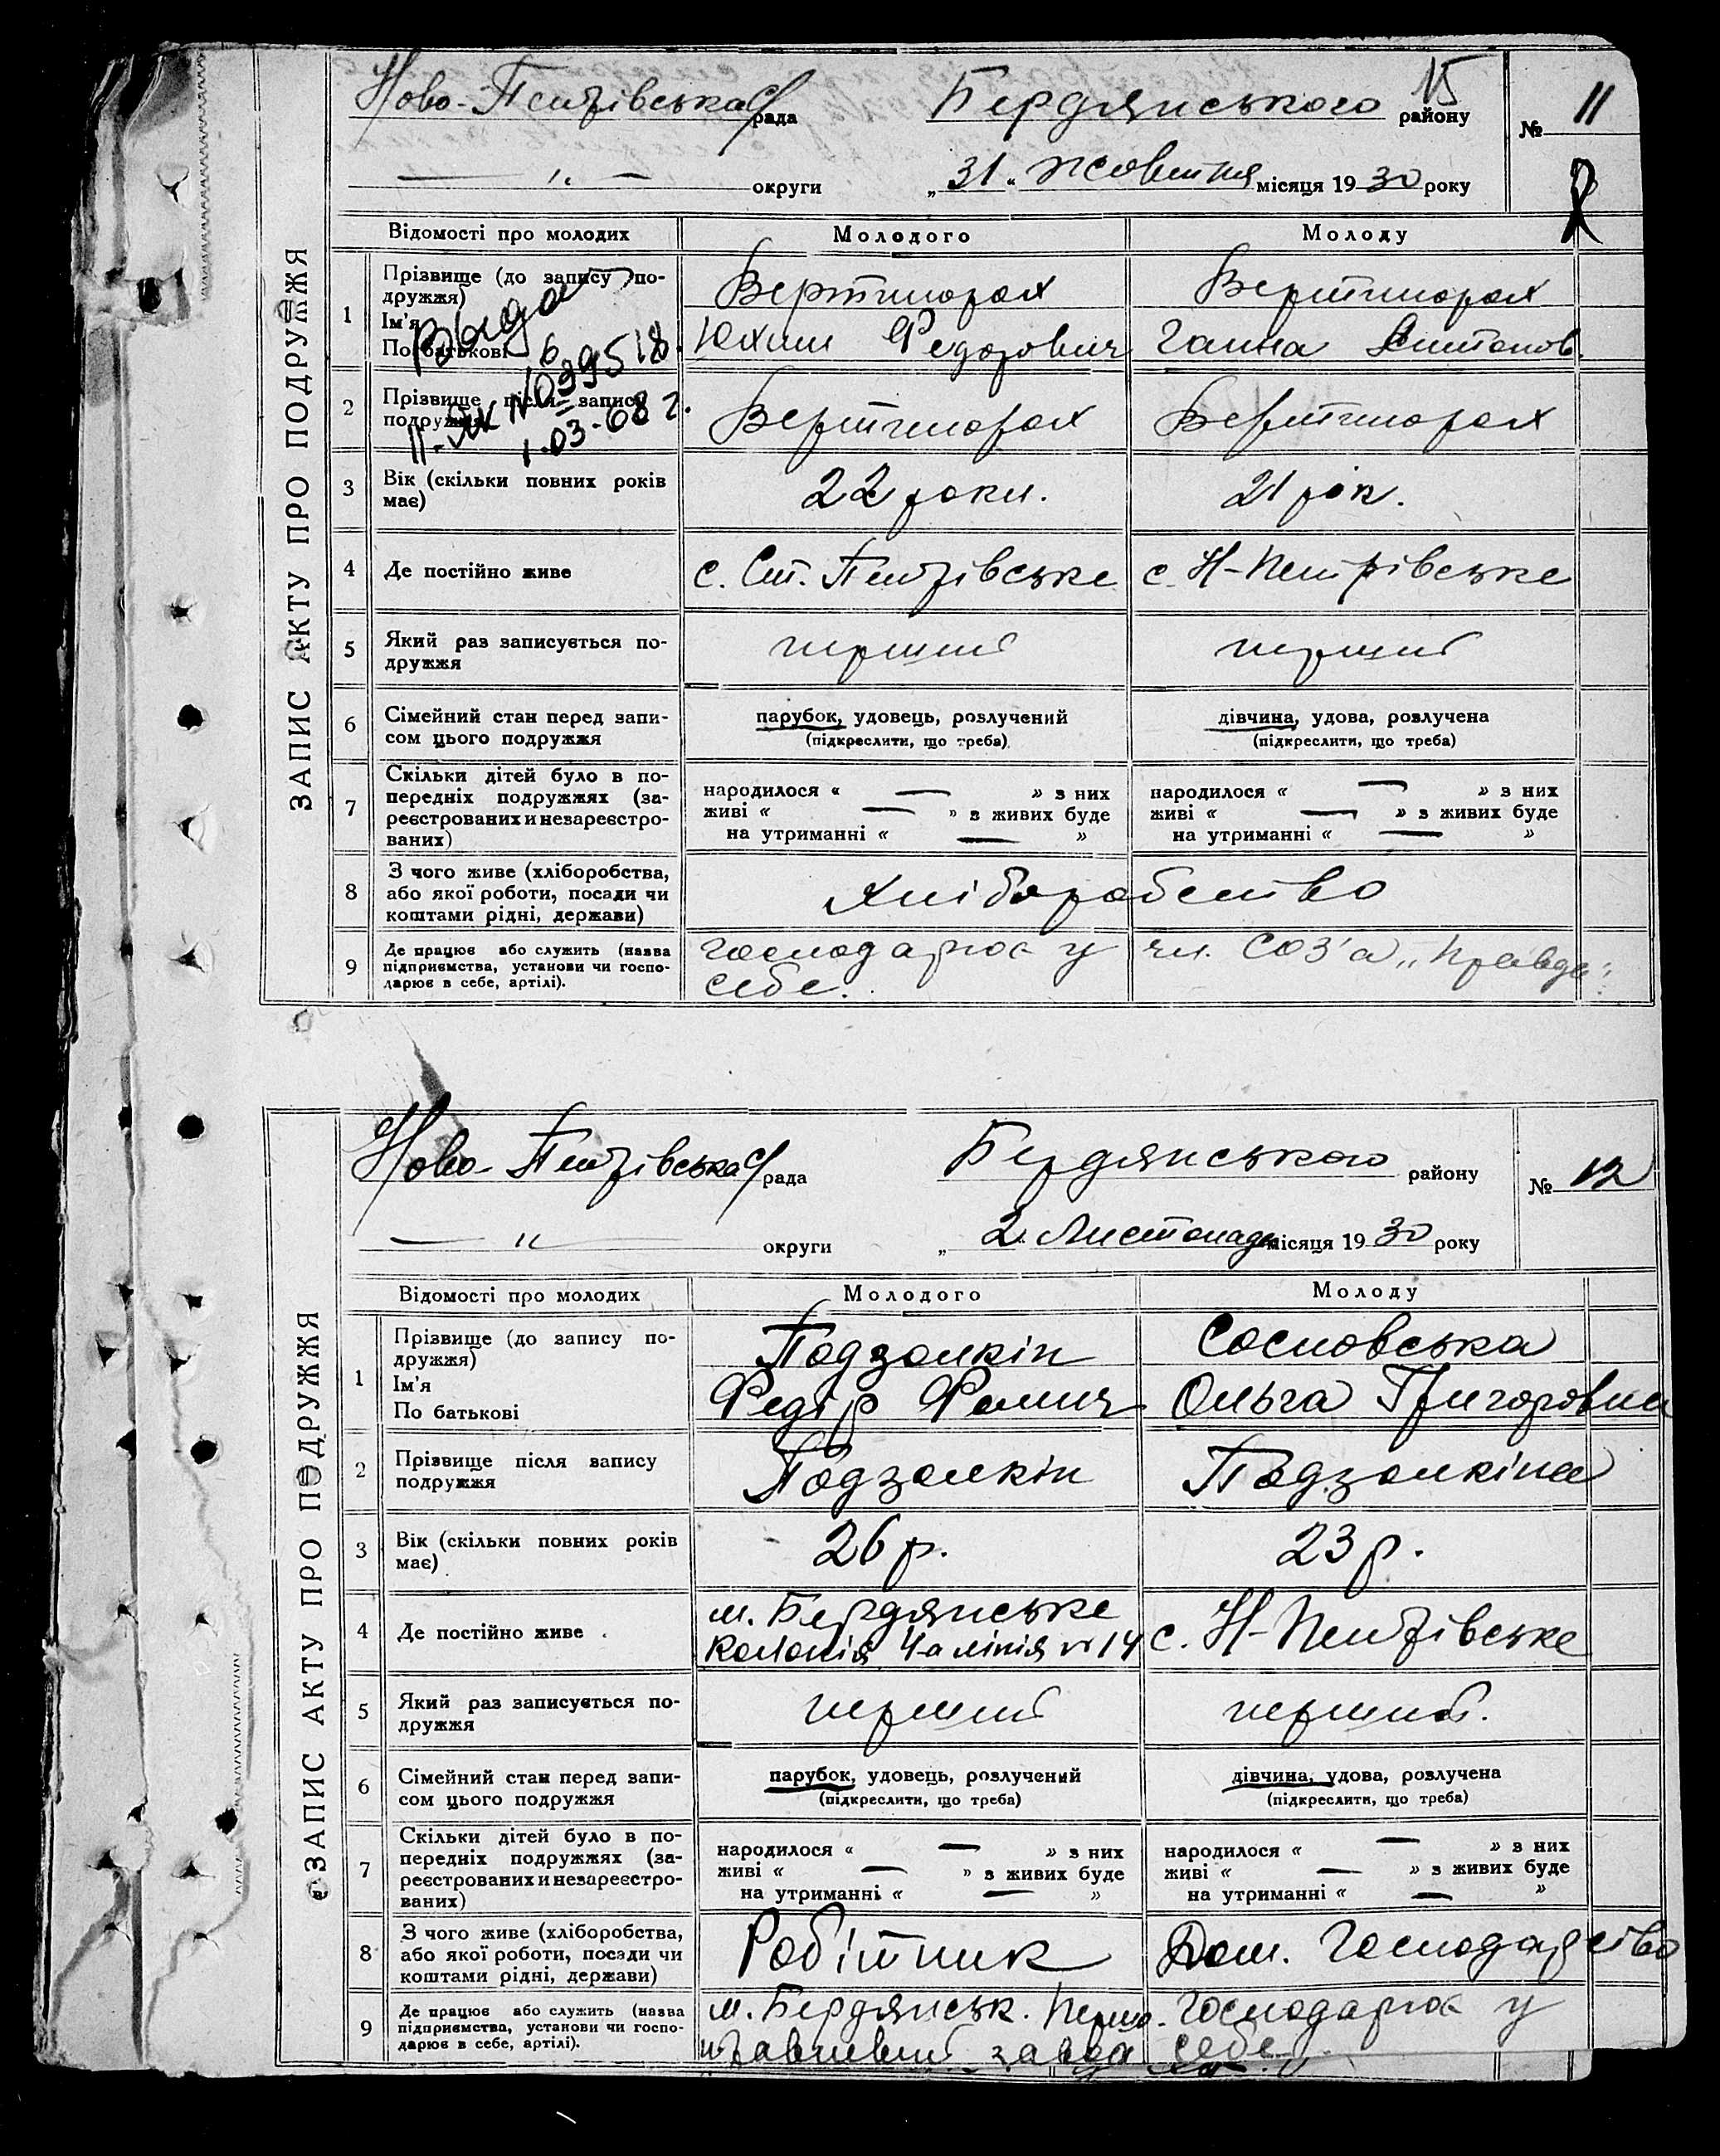 ЗАПИС АКТУ ПРО ПОДРУЖЖЯ
15
Ново-Петрівська с/рада Бердянського району № 11
— " — округи „31" жовтня місяця 1930 року
Відомості про молодих Молодого Молоду
1 Прізвище (до запису по-
дружжя)
Ім'я
По батькові
Вертипорох Вертипорох
Юхим Федорович Ганна Антонов.
Выдано
ІІ-ЯК № 099518
1.03-68 г.
2 Прізвище після запису
подружжя
Вертипорох Вертипорох
3 Вік (скільки повних років
має)
22 роки. 21 рік.
4 Де постійно живе с. Ст. Петрівське с. Н-Петрівське
5 Який раз записується по-
дружжя
перший перший
6 Сімейний стан перед запи-
сом цього подружжя
парубок, удовець, розлучений
(підкреслити, що треба)
дівчина, удова, розлучена
(підкреслити, що треба)
7 Скільки дітей було в по-
передніх подружжях (за-
реєстрованих и незареєстро-
ваних)
народилося « — » з них
живі « — » з живих буде
на утриманні « — »
народилося « — » з них
живі « — » з живих буде
на утриманні « — »
8 З чого живе (хліборобства,
або якої роботи, посади чи
коштами рідні, держави)
Хліборобство
9 Де працює або служить (назва
підприємства, установи чи госпо-
дарює в себе, артілі).
господарює у
себе.
чл. СОЗ'а „Правда"
ЗАПИС АКТУ ПРО ПОДРУЖЖЯ
Ново-Петрівська с/рада Бердянського району № 12
— " — округи „2 Листопада місяця 1930 року
Відомості про молодих Молодого Молоду
1 Прізвище (до запису по-
дружжя)
Ім'я
По батькові
Подзолкін Сосновська
Федір Фомич Ольга Григоровна
2 Прізвище після запису
подружжя
Подзолкін Подзолкіна
3 Вік (скільки повних років
має)
26 р. 23 р.
4 Де постійно живе
м. Бердянське
Колонія 4-а лінія № 14
с. Н-Петрівське
5 Який раз записується по-
дружжя
перший перший.
6 Сімейний стан перед запи-
сом цього подружжя
парубок, удовець, розлучений
(підкреслити, що треба)
дівчина, удова, розлучена
(підкреслити, що треба)
7 Скільки дітей було в по-
передніх подружжях (за-
реєстрованих и незареєстро-
ваних)
народилося « — » з них
живі « — » з живих буде
на утриманні « — »
народилося « — » з них
живі « — » з живих буде
на утриманні « — »
8 З чого живе (хліборобства,
або якої роботи, посади чи
коштами рідні, держави)
Робітник Дом. Господарство
9 Де працює або служить (назва
підприємства, установи чи госпо-
дарює в себе, артілі).
м. Бердянськ. Першо-
травневий завод
Господарює у
себе